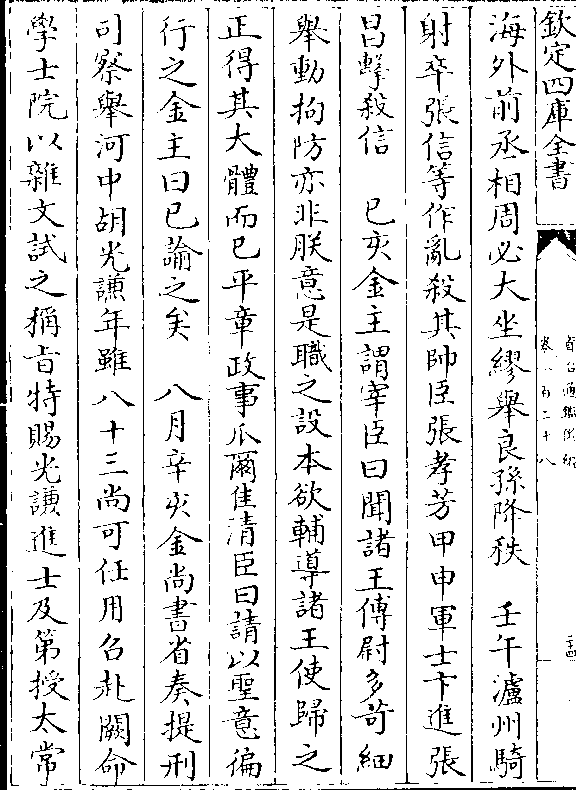 欽定四庫全書
資治通鑑後編
卷一百二十八
二十四
海外前丞相周必大坐繆舉良孫降秩　壬午瀘州騎
射卒張信等作亂殺其帥臣張孝芳甲申軍士卞進張
昌擊殺信　己亥金主謂宰臣曰聞諸王傅尉多苛細
舉動拘防亦非朕意是職之設本欲輔導諸王使歸之
正得其大體而已平章政事瓜爾佳清臣曰請以聖意徧
行之金主曰已諭之矣　八月辛亥金尚書省奏提刑
司察舉河中胡光謙年雖八十三尚可任用召赴闕命
學士院以雜文試之稱旨特賜光謙進士及第授太常